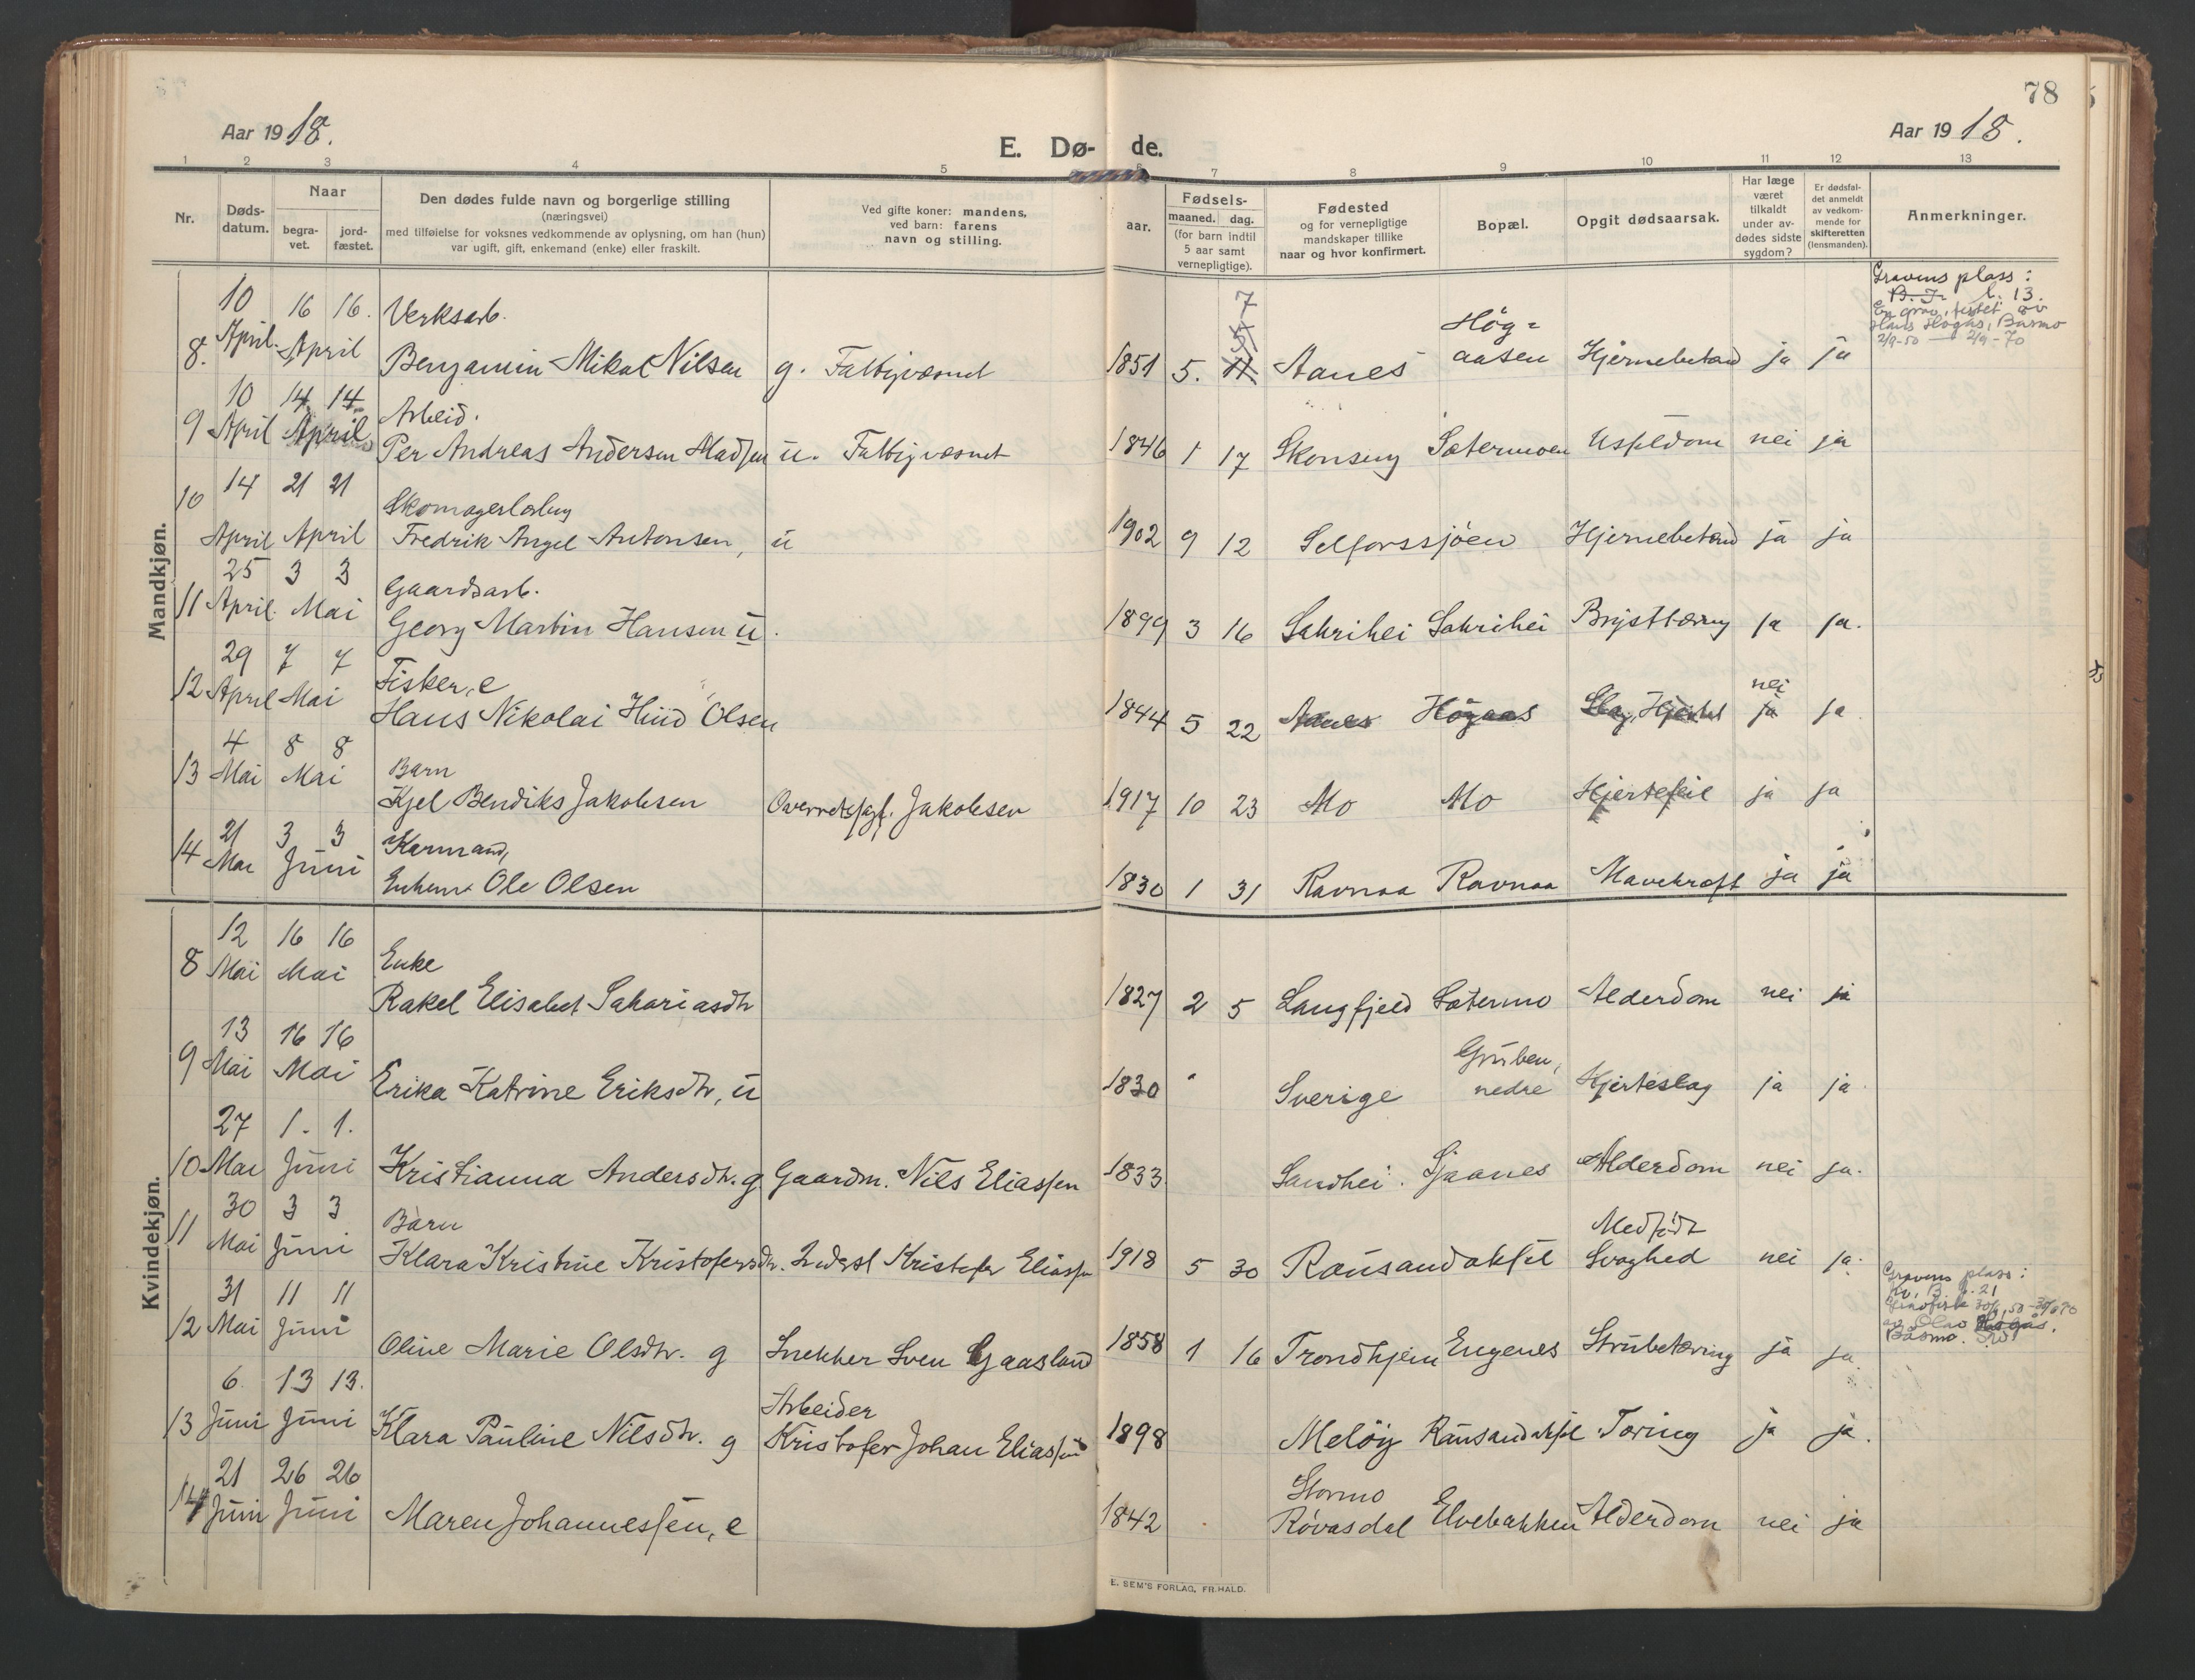 78
Aar 1918.
E. Dø- de.
Aar 1918.
1 2 3 4 5 6 7 8 9 10 11 12 13
Nr.
Døds-
datum.
Naar
begra-
vet.
jord-
fæstet.
Den dødes fulde navn og borgerlige stilling
(næringsvei)
med tilføielse for voksnes vedkommende av oplysning, om han (hun)
var ugift, gift, enkemand (enke) eller fraskilt.
Ved gifte koner: mandens,
ved barn: farens
navn og stilling.
aar.
Fødsels-
maaned. dag.
(for barn indtil
5 aar samt
vernepligtige).
Fødested
og for vernepligtige
mandskaper tillike
naar og hvor konfirmert.
Bopæl.
Opgit dødsaarsak.
Har læge
været
tilkaldt
under av-
dødes sidste
sygdom?
Er dødsfal-
det anmeldt
av vedkom-
mende for
skifteretten
(lensmanden).
Anmerkninger.
Mandkjøn.
10 16 16. Verksarb. 7 Høg= Gravens plass:
B. J. l. 13.
En grav, festet av
Hans Høgås, Båsmo
2/9-50 — 2/9-70
8. April. April Benjamin Mikal Nilsen g. Fattigvæsnet 1851 5. 11 Aanes aasen Hjernebetænd ja ja
10 14 14 Arbeid.
9 April April Per Andreas Andersen Madsen u. Fattigvæsnet 1846 1 17 Skonseng Sætermoen Uspeldom nei ja
14 21 21 Skomagerlærling
10 April April Fredrik Angel Antonsen, u 1902 9 12 Selforssjøen Hjernebetænd ja ja
25 3 3 Gaardsarb.
11 April Mai Georg Martin Hansen u. 1899 3 16 Sakrihei Sakrihei Brysttæring ja ja.
29 7 7 Fisker, e nei
12 April Mai Hans Nikolai Hind Olsen 1844 5 22 Aanes Høgaas Slag, ja ja
4 8 8 Barn
13 Mai Mai Kjel Bendiks Jakobsen Overretssagf. Jakobsen 1917 10 23 Mo Mo Hjertefeil ja ja
21 3 3 Karmand,
14 Mai Juni Enkem. Ole Olsen 1830 1 31 Ravnaa Ravnaa Mavekræft ja ja
Kvindekjøn.
12 16 16 Enke
8 Mai Mai Rakel Elisabet Sakariasdtr 1827 2 5 Langfjeld Sætermo Alderdom nei ja
13 16 16 Gruben,
9 Mai Mai Erika Katrine Eriksdtr, u 1830 Sverige nedre Hjerteslag ja ja
27 1. 1.
10 Mai Juni Kristianna Andersdtr. g. Gaardm. Nils Eliassen 1833 Sandhei. Sjaanes Alderdom nei ja.
30 3 3 Barn Medfødt
11 Mai Juni Klara Kristine Kristofersdtr. Inderst Kristofer Eliassen 1918 5 30 Rausandaksel Svaghed nei ja.
31 11 11 Gravens plass:
Kv. B. l. 21
30/6, 50 - 30/6 70
av Olav Høgås,
Båsmo.
12 Mai Juni Oline Marie Olsdtr. g Snekker Sven Gaasland 1858 1 16 Trondhjem Engenes Strubetæring ja ja.
6. 13 13. Arbeider
13 Juni Juni Klara Pauline Nilsdtr. g Kristofer Johan Eliassen 1898 Meløy Rausandaksel Tæring ja ja.
21 26 26 Stormo
14 Juni Juni Maren Johannessen, e 1842 Røvasdal Elvebakken Alderdom nei ja
E. SEM'S FORLAG, FR.HALD.